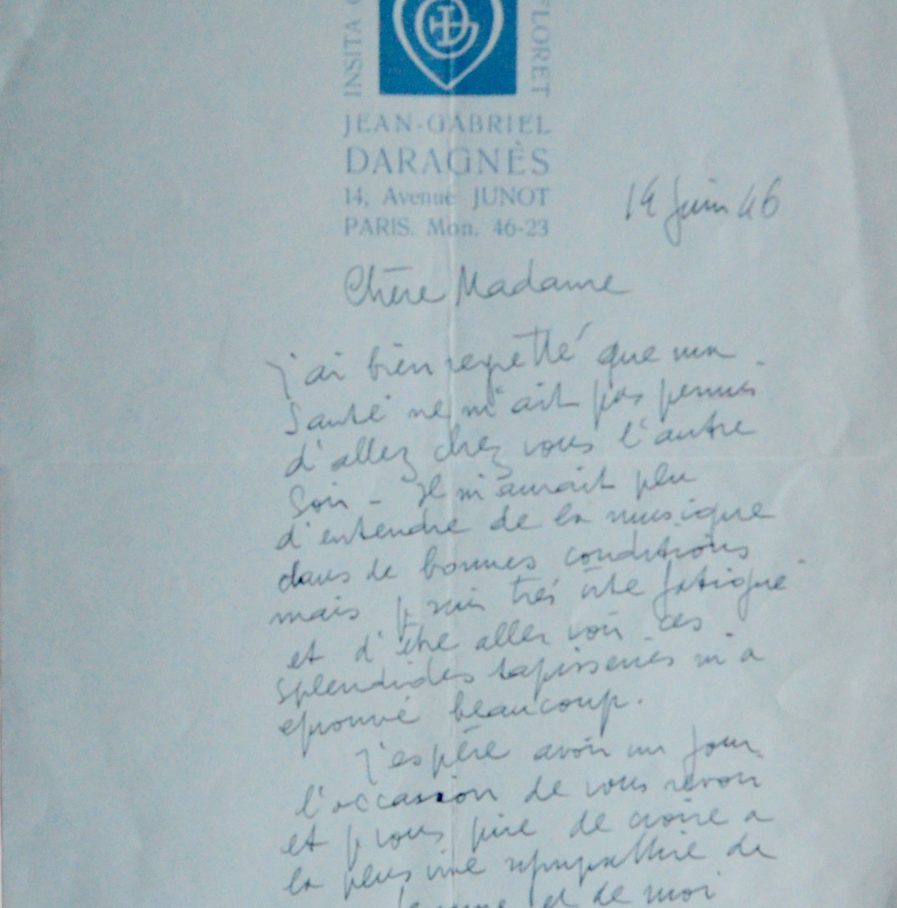 INSITA
FLORET
JEAN-GABRIEL
DARAGNÈS
14, Avenue JUNOT
PARIS. Mon. 46-23
14 Juin 46
Chère Madame
j'ai bien regretté que ma
santé ne m'ait pas permis
d'allez chez vous l'autre
soir - Il m'aurait plu
d'entendre de la musique
dans de bonnes conditions
mais je suis très vite fatigué
et d'être aller voir ces
splendides tapisseries m'a
eprouvé beaucoup.
J'espère avoir un jour
l'occasion de vous revoir
et je vous prie de croire a
la plus vive sympathie de
femme et de moi